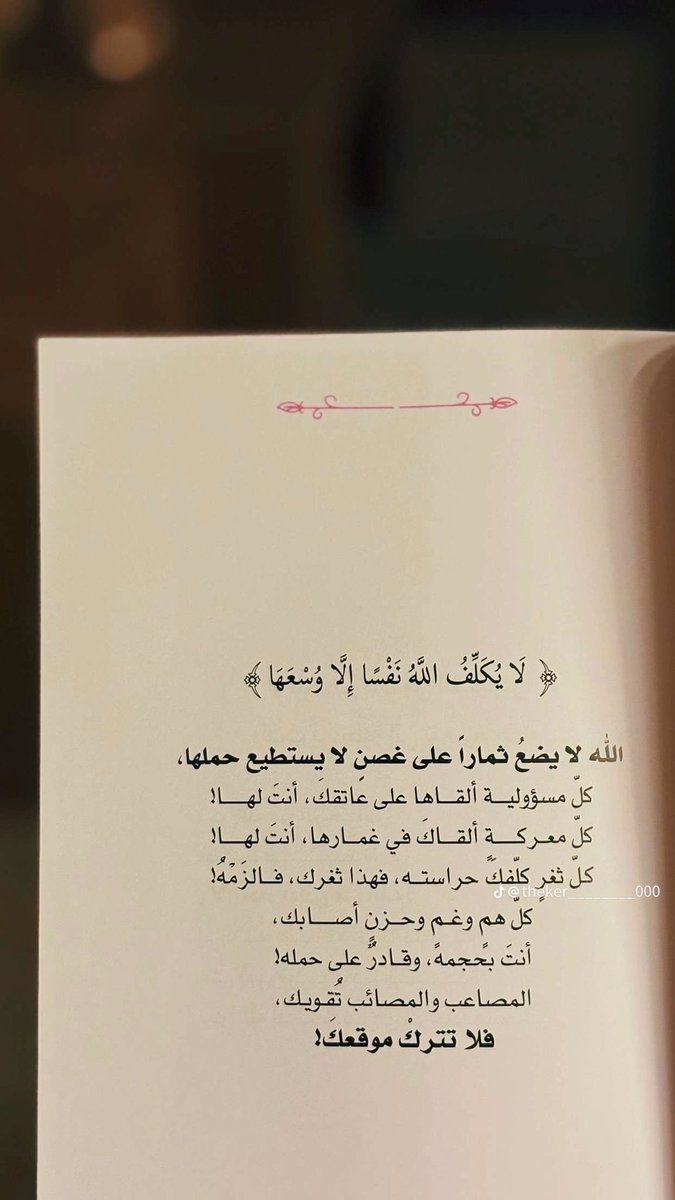 ﴿ لَا يُكَلِّفُ اللَّهُ نَفْسًا إِلَّا وُسْعَهَا ﴾
الله لا يضعُ ثماراً على غصنٍ لا يستطيع حملها،
كلّ مسؤوليـة ألقـاها على عاتقكَ، أنتَ لهـا!
كلّ معركـة ألقـاكَ في غمـارها، أنتَ لهـا!
كلّ ثغرٍ كلّفكَ حراستـه، فهذا ثغرك، فـالزَمْهُ!
@theker________000
كلّ همٍ وغـمٍ وحـزنٍ أصـابك،
أنتَ بحجمهِ، وقـادرٌ على حمله!
المصاعب والمصائب تُقويك،
فلا تتركْ موقعكَ!